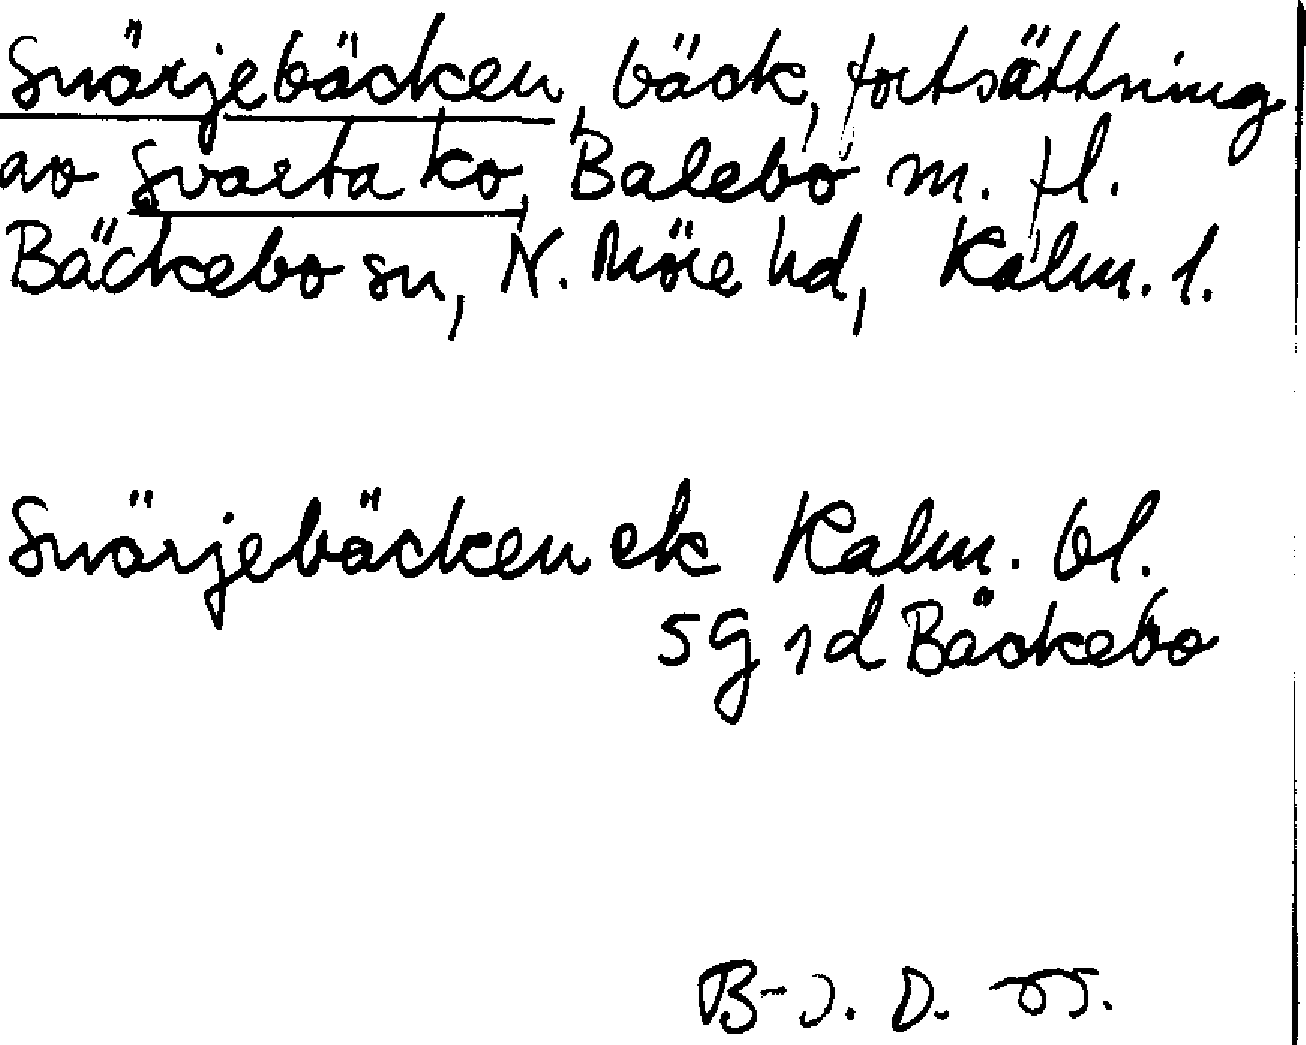 Snärjebäcken, bäck, fortsättning
av Svarta ko, Balebo m. fl.
Bäckebo sn, N. Möre hd, Kalm. l.
Snärjebäcken ek Kalm. bl.
5G rd Bäckebo
B-J. D.